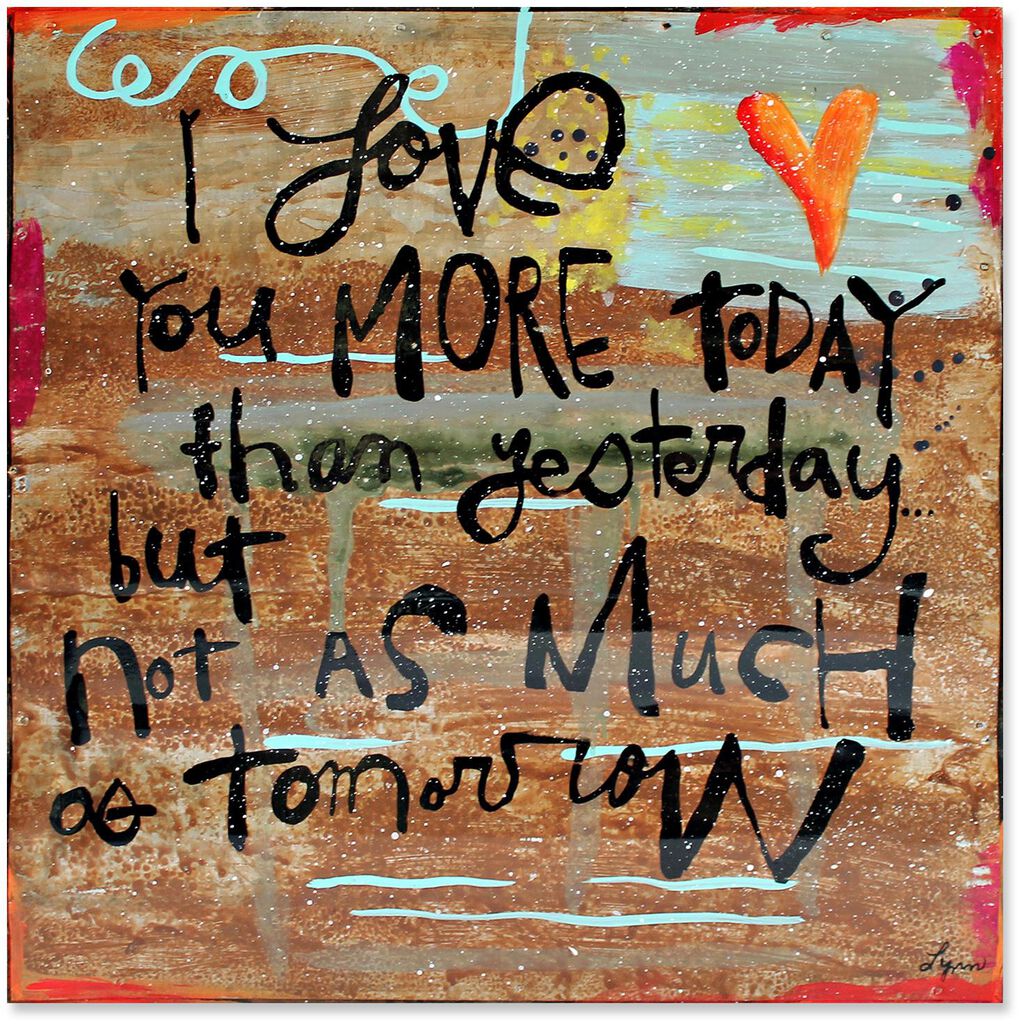 I Love
You MORE TODAY
than yesterday...
but
not AS MUCH
as tomorrow
Lynn